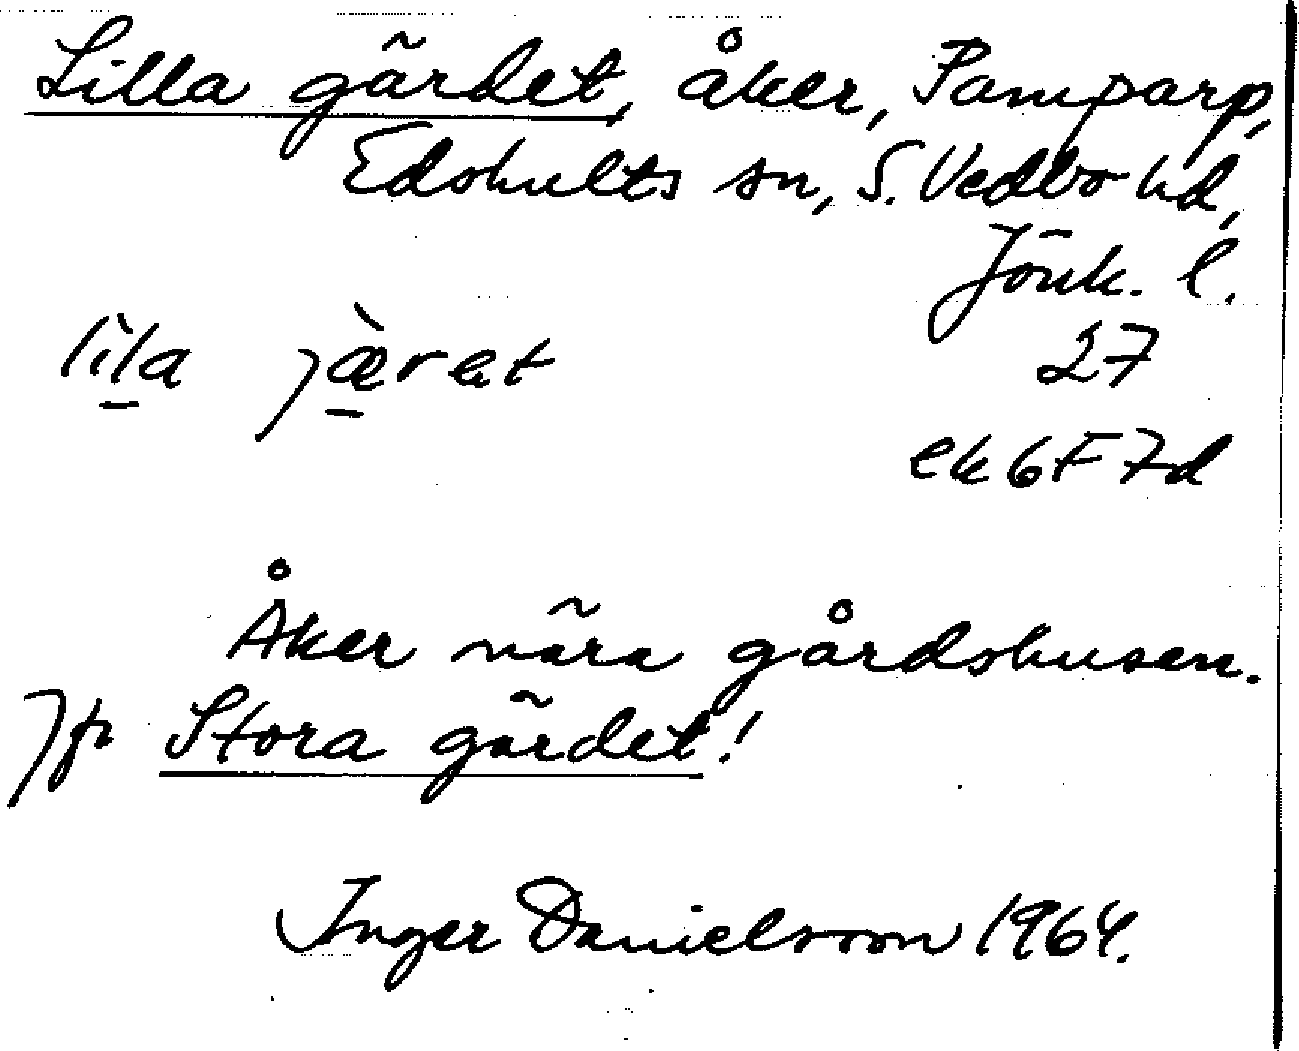 Lilla gärdet, åker, Pamparp,
Edshults sn, S. Vedbo hd,
Jönk. l.
lìla jæ̀ret
27
ek 6F7d
Åker nära gårdshusen.
Jfr Stora gärdet!
Inger Danielsson 1964.